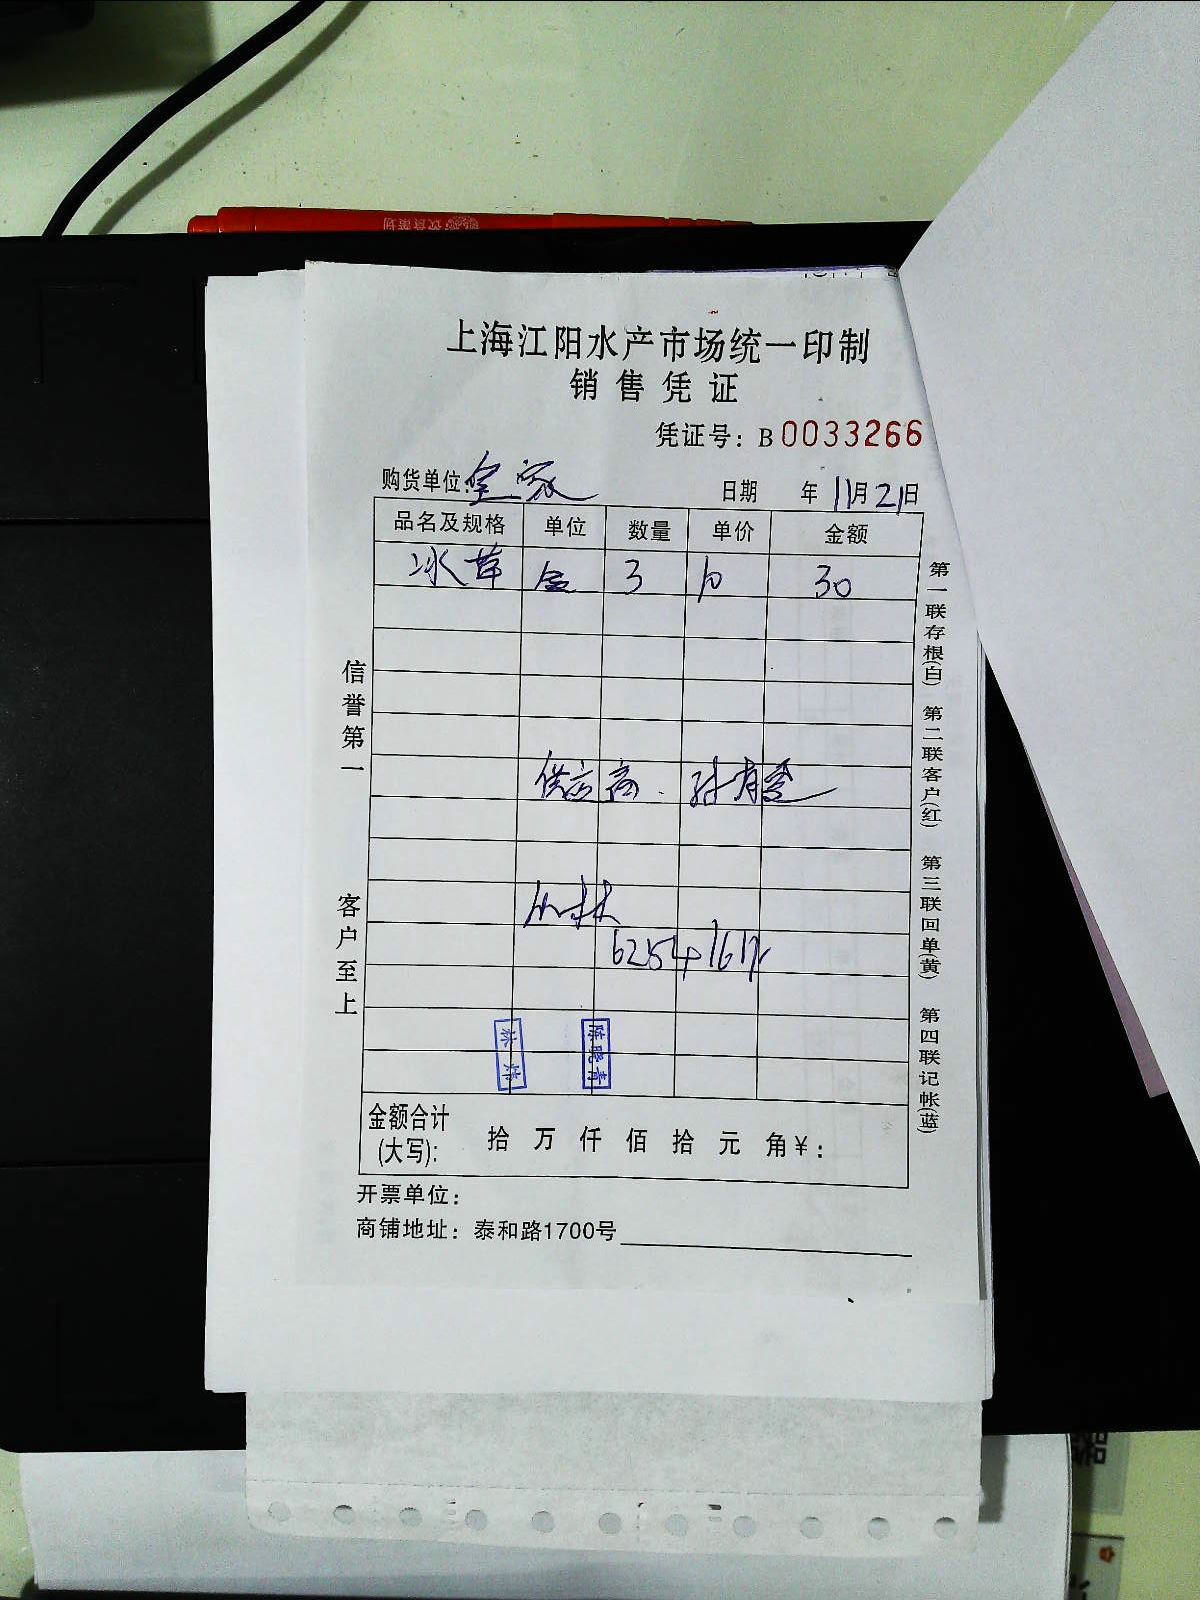 上海江阳水产市场统一印制
销售凭证
凭证号：B 0033266
购货单位：皇家 日期 年 11月21日
品名及规格 单位 数量 单价 金额
冰草 盒 3 10 30
供应商.
小林
6254
金额合计(大写)： 拾 万 仟 佰 拾 元 角 ¥：
开票单位：
商铺地址：泰和路1700号
信誉第一
客户至上
第一联存根(白) 第二联客户(红) 第三联回单(黄) 第四联记帐(蓝)
陈晓青